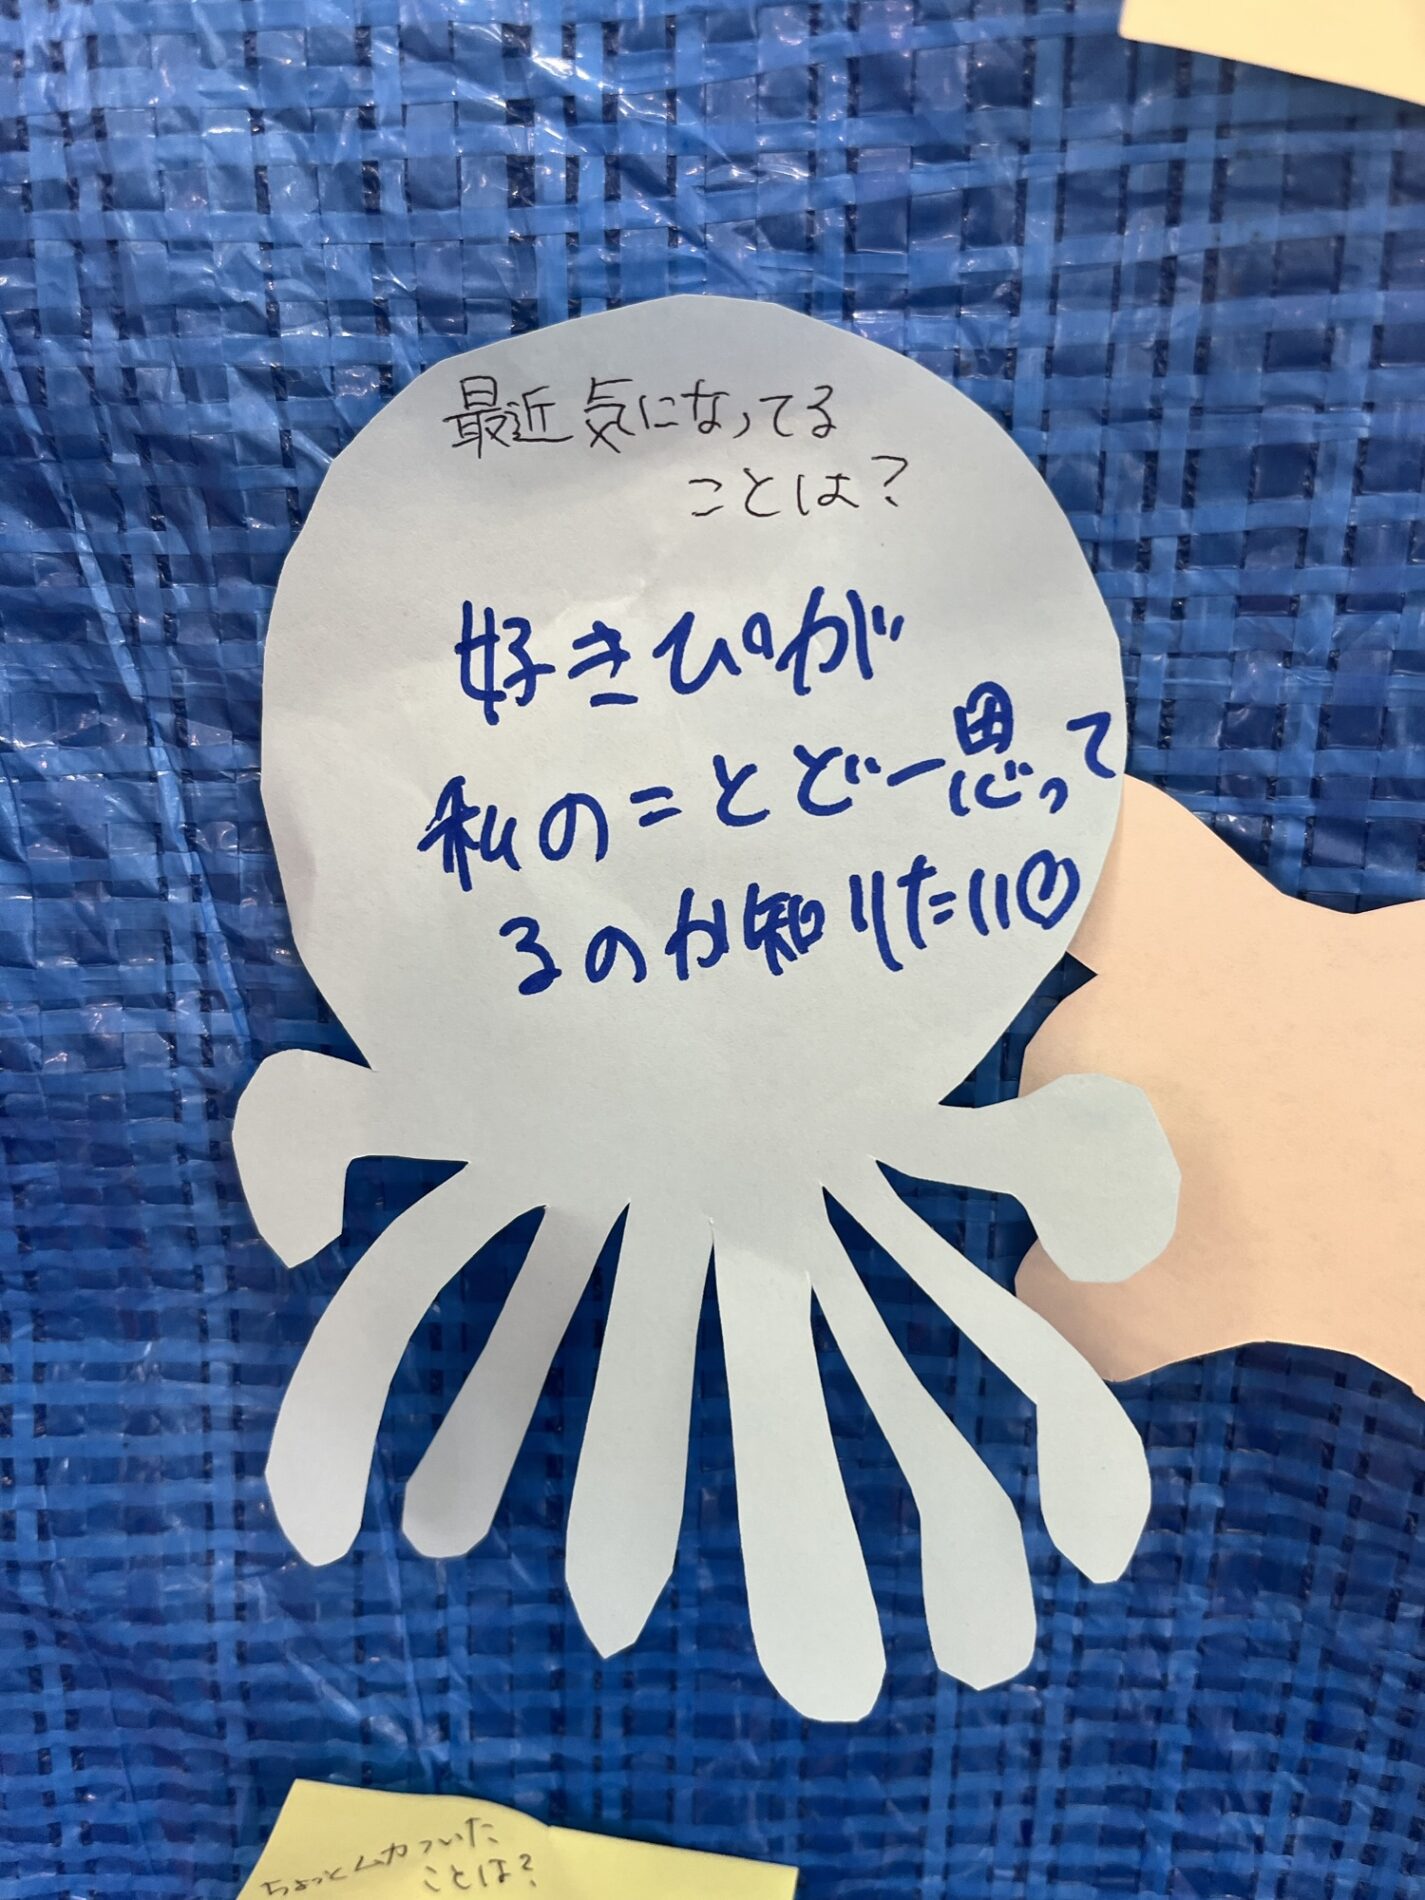 最近気になってる
ことは？
好きぴが
私のことどー思って
るのか知りたい♡
ちょっとムカついた
ことは？